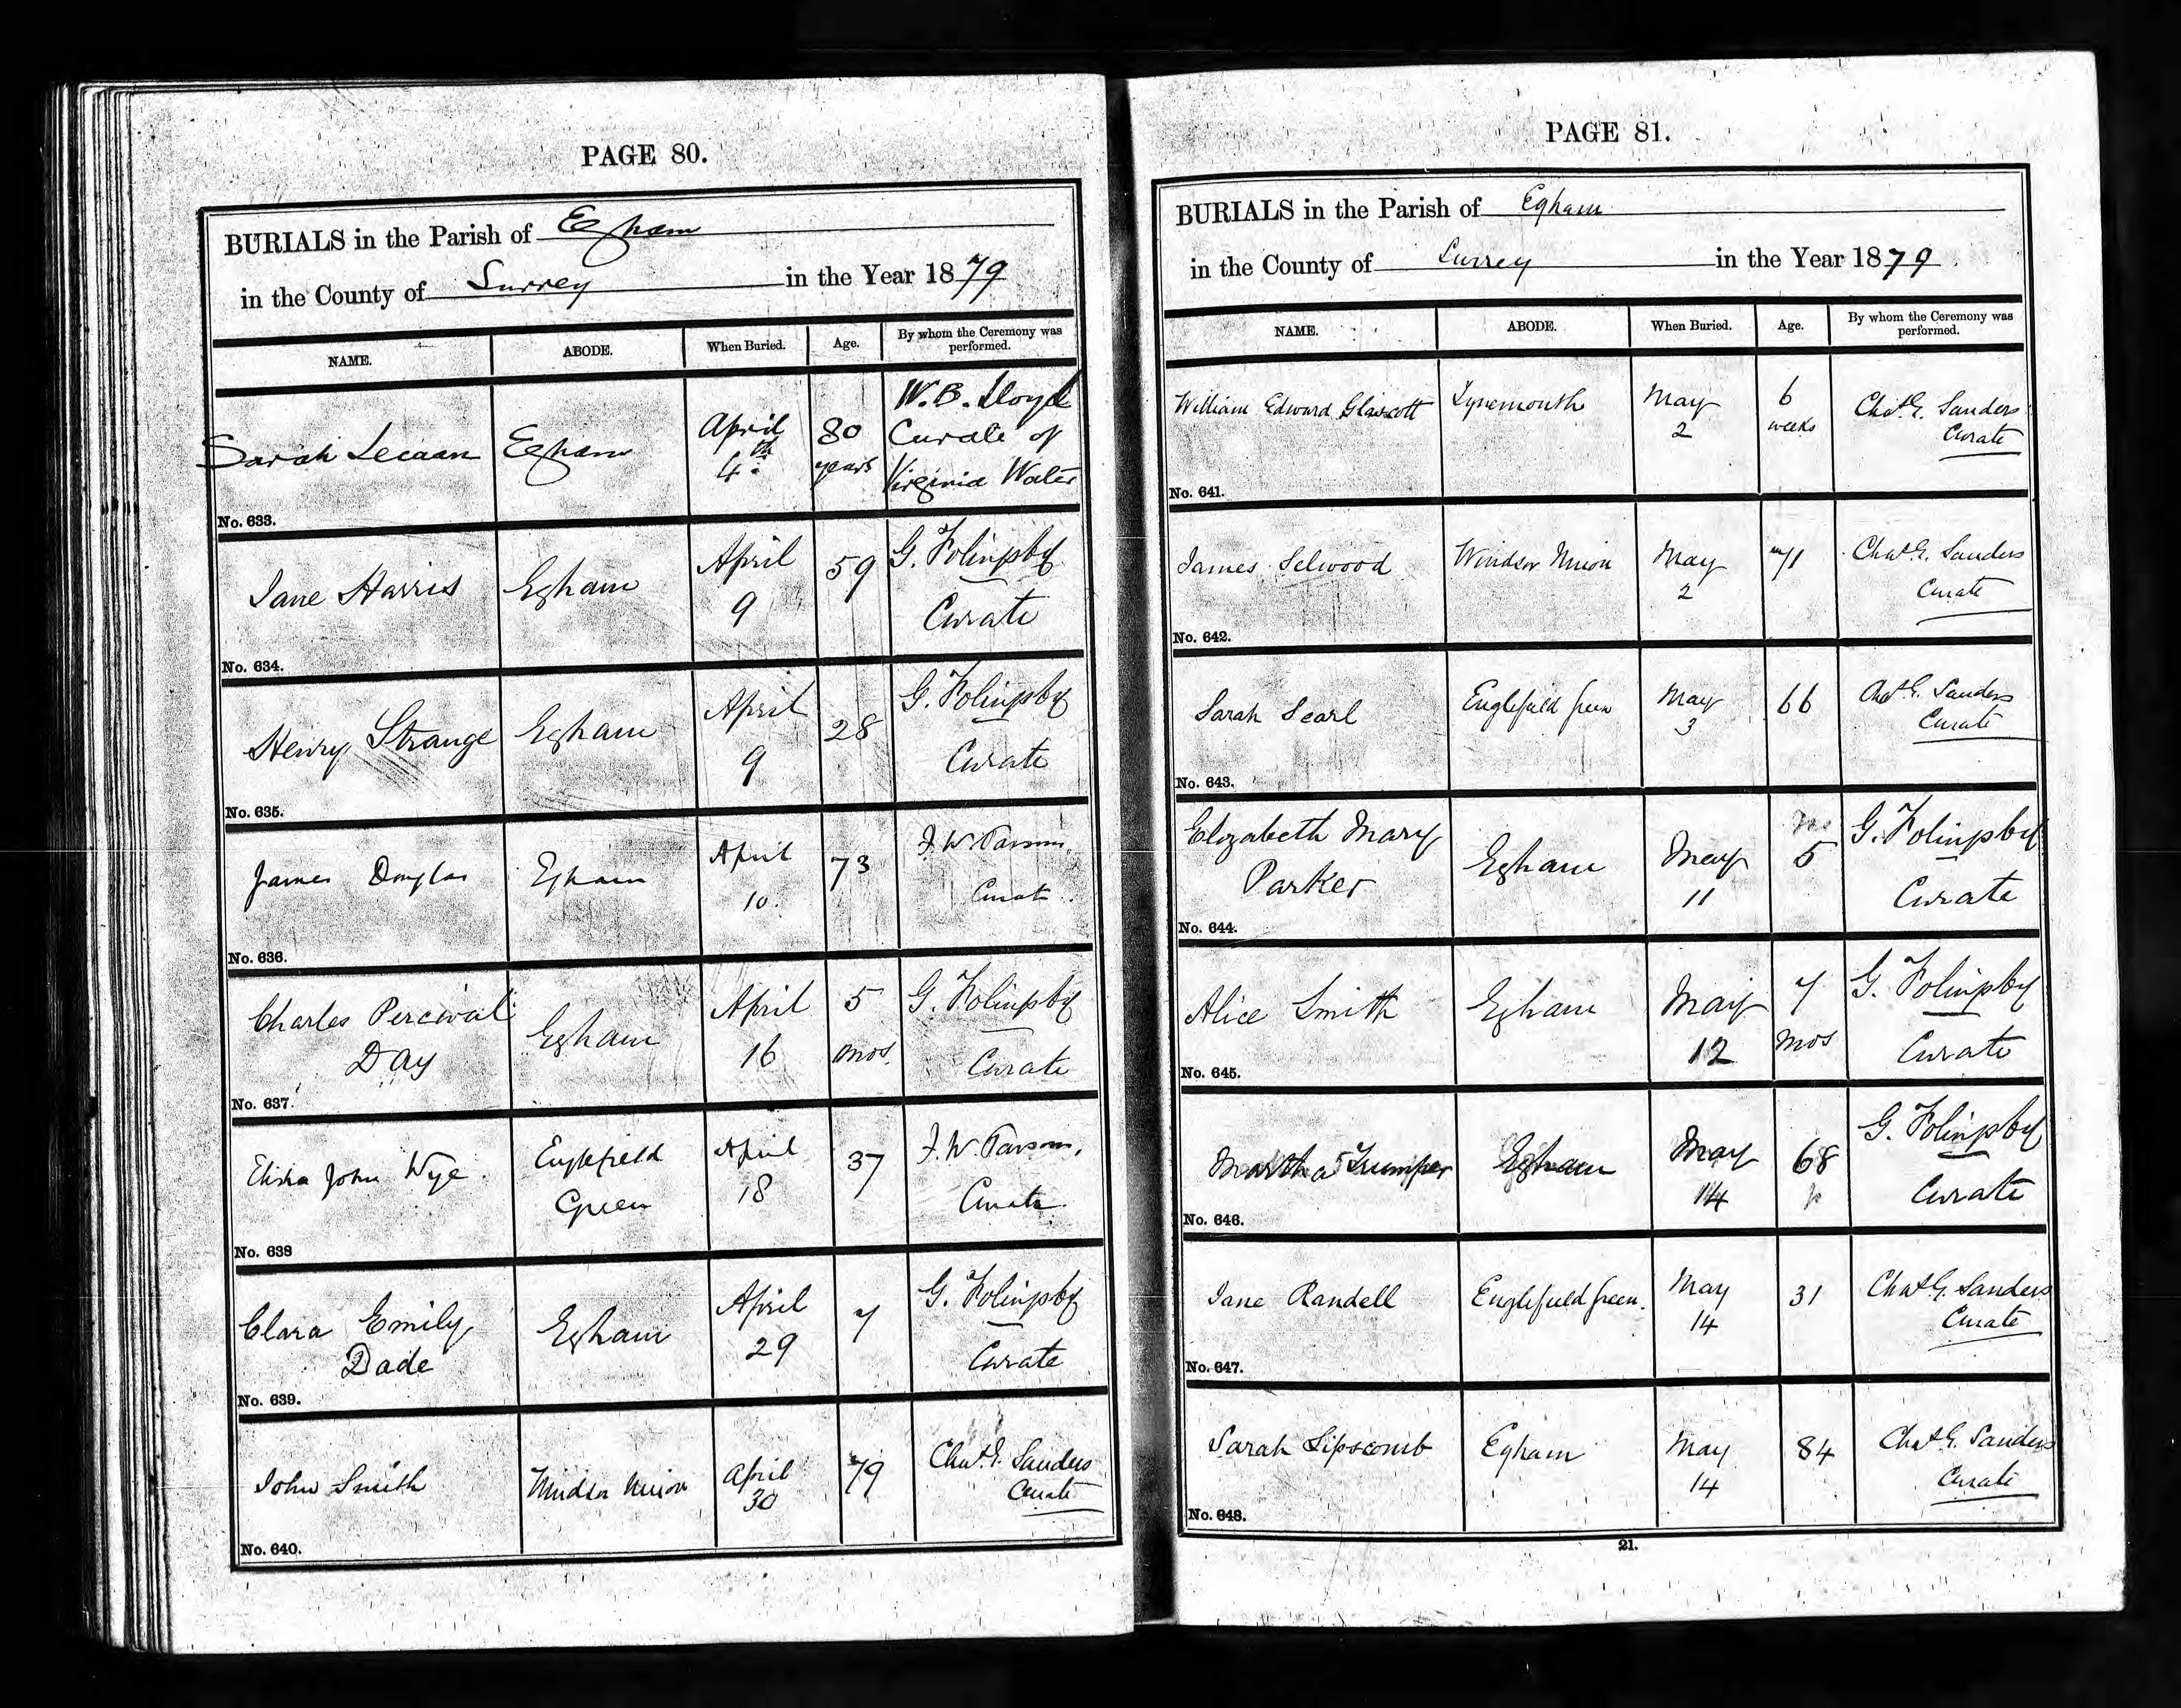 PAGE 80.
BURIALS in the Parish of Egham
in the County of Surrey in the Year 1879
NAME. ABODE. When Buried. Age. By whom the Ceremony was performed.
Sarah Egham April 4th 80 years W. B. Lloyd Curate of Virginia Water
No. 633.
Jane Harris Egham April 9 59 G. Folingsby Curate
No. 634.
Henry Strange Egham April 9 28 G. Folingsby Curate
No. 635.
James Douglas Egham April 10 73 F. W. Parsons, Curate
No. 636.
Charles Percival Day Egham April 16 5 mos G. Folingsby Curate
No. 637.
Elisha John Wye Englefield Green April 18 37 F. W. Parsons, Curate
No. 638
Clara Emily Dade Egham April 29 7 G. Folingsby Curate
No. 639.
John Smith Windsor Union April 30 79 Chas. E. Sanders Curate
No. 640.
PAGE 81.
BURIALS in the Parish of Egham
in the County of Surrey in the Year 1879
NAME. ABODE. When Buried. Age. By whom the Ceremony was performed.
William Edward Glascott Tynemouth May 2 6 weeks Chas. E. Sanders Curate
No. 641.
James Selwood Windsor Union May 2 71 Chas. E. Sanders Curate
No. 642.
Sarah Searl Englefield Green May 3 66 Chas. E. Sanders Curate
No. 643.
Elizabeth Mary Parker Egham May 11 5 G. Folingsby Curate
No. 644.
Alice Smith Egham May 12 7 mos G. Folingsby Curate
No. 645.
Martha Trumper Egham May 14 68 G. Folingsby Curate
No. 646.
Jane Randell Englefield Green. May 14 31 Chas. E. Sanders Curate
No. 647.
Sarah Lipscomb Egham May 14 84 Chas. E. Sanders Curate
No. 648.
21.